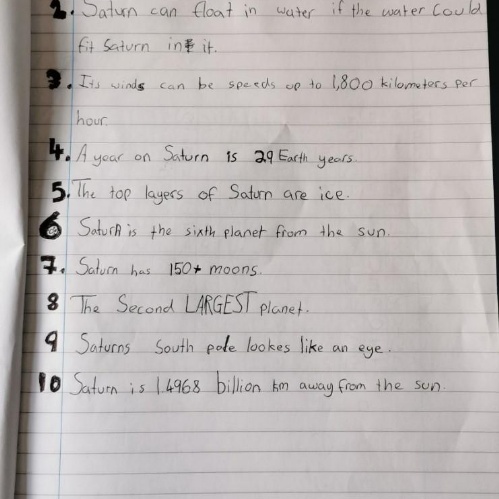 2. Saturn can float in water if the water could
fit Saturn in it.
3. Its winds can be speeds up to 1,800 kilometers per
hour.
4. A year on Saturn is 29 Earth years.
5. The top layers of Saturn are ice.
6 Saturn is the sixth planet from the sun.
7. Saturn has 150+ moons.
8 The Second LARGEST planet.
9 Saturns South pole lookes like an eye.
10 Saturn is 1.4968 billion km away from the sun.